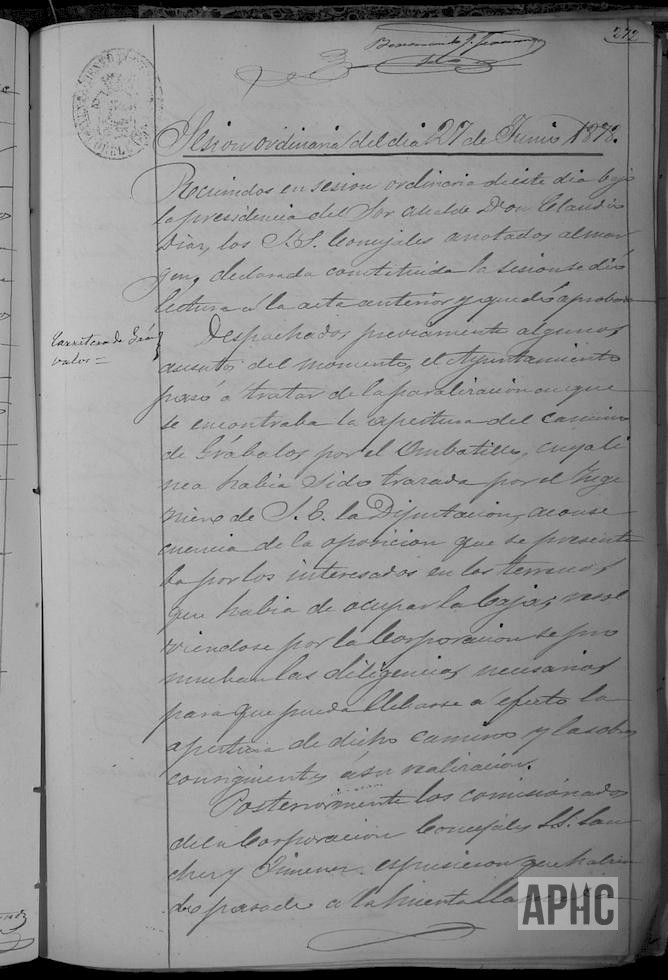 272
Sesion ordinaria del dia 27 de Junio 1878.
Reunidos en sesion ordinaria de este dia bajo
la presidencia del Sor Alcalde Don Claudio
Diaz, los S.S. Concejales anotados al mar
gen, declarada constituida la sesion se dió
lectura á la acta anterior y quedó aprobada
Carretera de Grá
valos =
Despachados previamente algunos
asuntos del momento, el Ayuntamiento
pasó á tratar de la paralizacion en que
se encontraba la apertura del camino
de Grábalos por el Ombatillo, cuya li
nea habia sido trazada por el Inge
niero de S. E. la Diputacion, á conse
cuencia de la oposicion que se presenta
ba por los interesados en los terrenos
que habia de ocupar la Caja; resol
viendose por la Corporacion se pro
muevan las diligencias necesarias
para que pueda llebarse á efecto la
apertura de dicho camino y las obras
consiguientes á su realizacion.
Posteriormente los comisionados
de la Corporacion Concejales S.S. San
chez y Jimenez espusieron que habien
do pasado á la
APHC